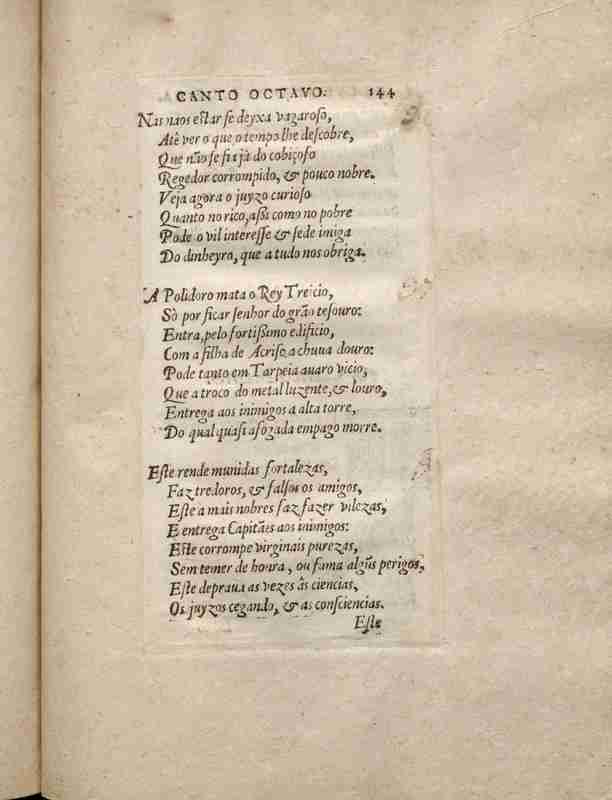 CANTO OCTAVO. 144
Nas naos estar se deyxa vagaroso,
Atè ver o que o tempo lhe descobre,
Que não se fia já do cobiçoso
Regedor corrompido, & pouco nobre.
Veja agora o juyzo curioso
Quanto no rico, aßi como no pobre
Pode o vil interesse & sede imiga
Do dinheyro, que a tudo nos obriga.
A Polidoro mata o Rey Treicio,
Sò por ficar senhor do grão tesouro:
Entra, pelo fortißimo edificio,
Com a filha de Acriso a chuua douro:
Pode tanto em Tarpeia auaro vicio,
Que a troco do metal luzente, & louro,
Entrega aos inimigos a alta torre,
Do qual quasi afogada em pago morre.
Este rende munidas fortalezas,
Faz tredoros, & falsos os amigos,
Este a mais nobres faz fazer vilezas,
E entrega Capitães aos inimigos:
Este corrompe virginais purezas,
Sem temer de honra, ou fama algũs perigos,
Este depraua as vezes âs ciencias,
Os juyzos cegando, & as consciencias.
Este